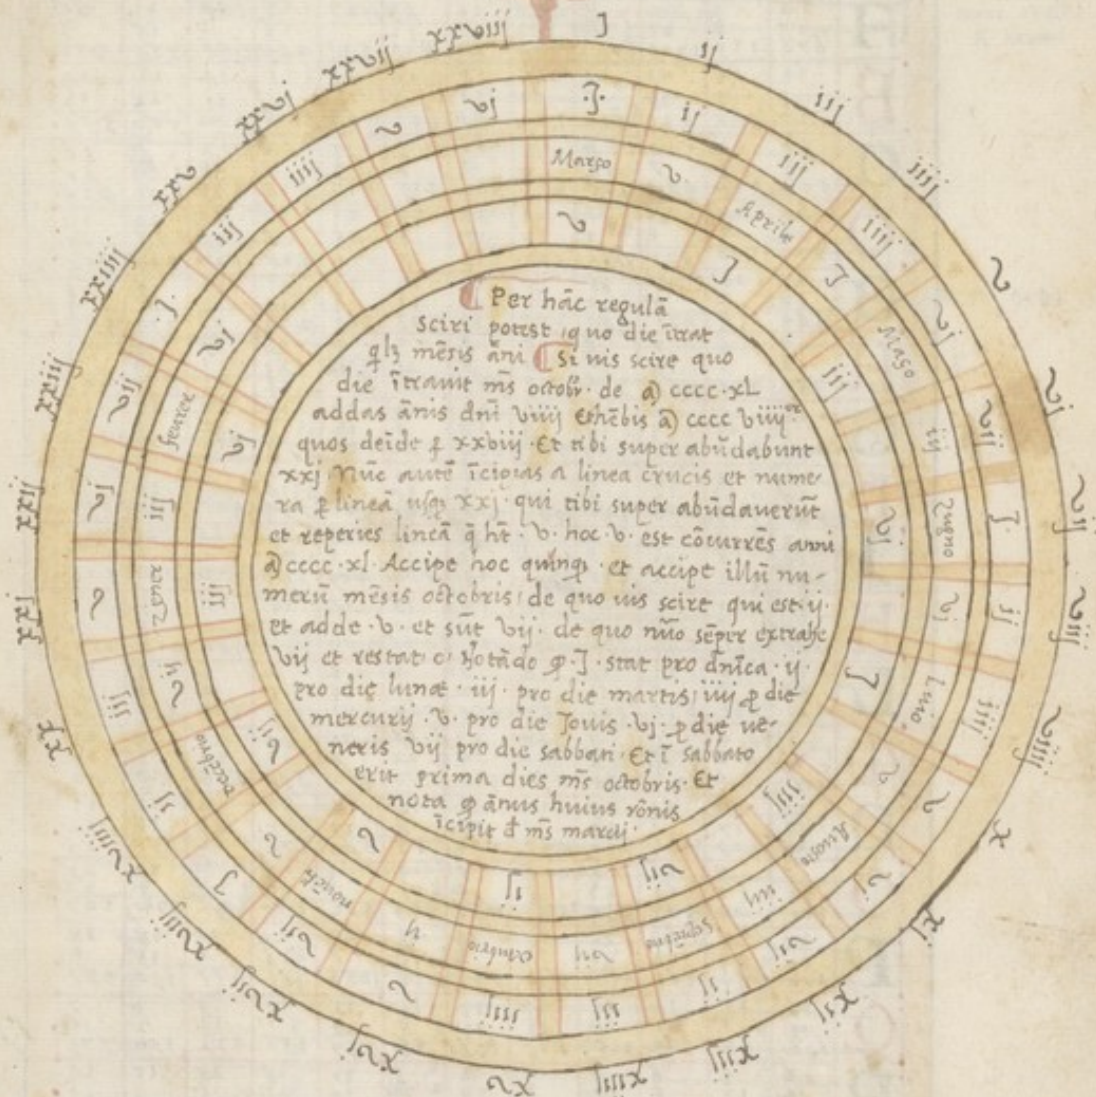 J
ij
iij
iiij
v
vj
vij
viij
viiij
x
xj
xij
xiij
xiiij
xv
xvj
xvij
xviij
xviiij
xx
xxj
xxij
xxiij
xxiiij
xxv
xxvj
xxvij
xxviij
·J·
ij
iij
iiij
vj
vij
J
ij
iiij
v
vj
vij
ij
iij
iiij
v
vij
J
ij
iij
v
vj
vij
·J·
iij
iiij
v
vj
Março
v
Aprile
J
Maço
iij
Zugno
vj
Luio
J
Avosto
iiij
Setēbrio
vij
ij
novēb
v
decēbrio
vij
Zener
iij
fevrer
vj
Per hāc regulā
sciri potest quo die ītrat
qlꝫ mēsis āni Si uis scire quo
die ītrauit ms̄ octobr· de cccc·xL
addas ānis dnī viiij Et hēbis cccc viiij
quos deīde ꝑ xxbiij · Et tibi super abūdabunt
xxj Nūc autē īcipias a linea crucis et nume-
ra ꝑ lineā usqꝫ xxj · qui tibi super abūdauerūt
et reperies lineā q̄ ht̄ · v · hoc · v · est cōcurrēs anni
cccc · xl · Accipe hoc quinqꝫ · et accipe illū nu-
merū mēsis octobris de quo uis scire qui est ij ·
et adde · v · et sūt vij · de quo nūo sēper extrahe
vij et restat o notādo ꝙ · J · stat pro dn̄ica · ij ·
pro die lunae · iij · pro die martis iiij ꝓ die
mercurij · v · pro die Jouis · vj · ꝓ die ue-
neris vij pro die sabbati · Et ī sabbato
erit prima dies ms̄ octobris · Et
nota ꝙ ānus huius rōnis
īcipit d̄ ms̄ marcij ·